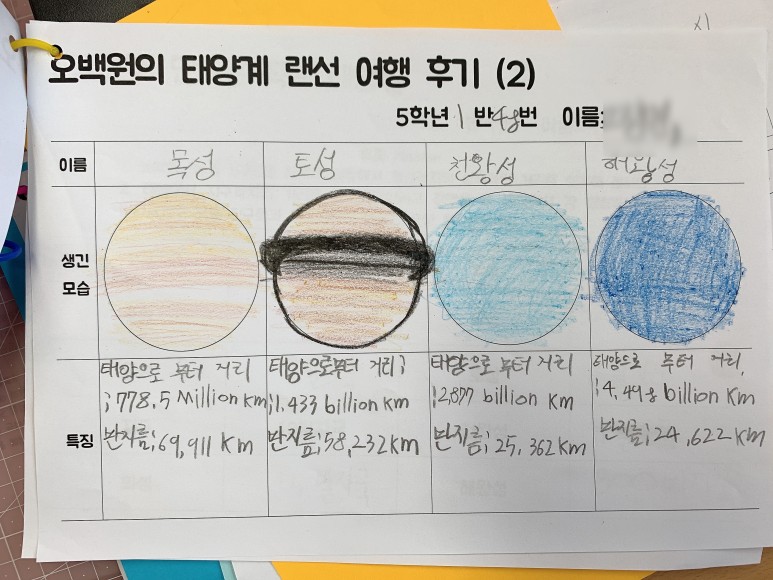 오백원의 태양계 랜선 여행 후기 (2)
5학년 1 반 48번 이름:
이름 목성 토성 천왕성 해왕성
생긴
모습
특징
태양으로 부터 거리
;778.5 Million Km
반지름;69,911 Km
태양으로부터 거리;
;1.433 billion Km
반지름;58,232km
태양으로 부터 거리
;2,877 billion Km
반지름;25,362Km
태양으로 부터 거리,
;4.498 billion Km
반지름;24,622 Km